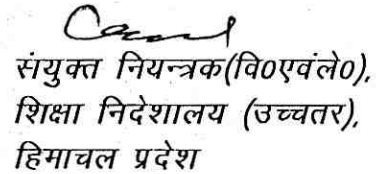 संयुक्त नियन्त्रक(वि0एवंले0),
शिक्षा निदेशालय (उच्चतर),
हिमाचल प्रदेश